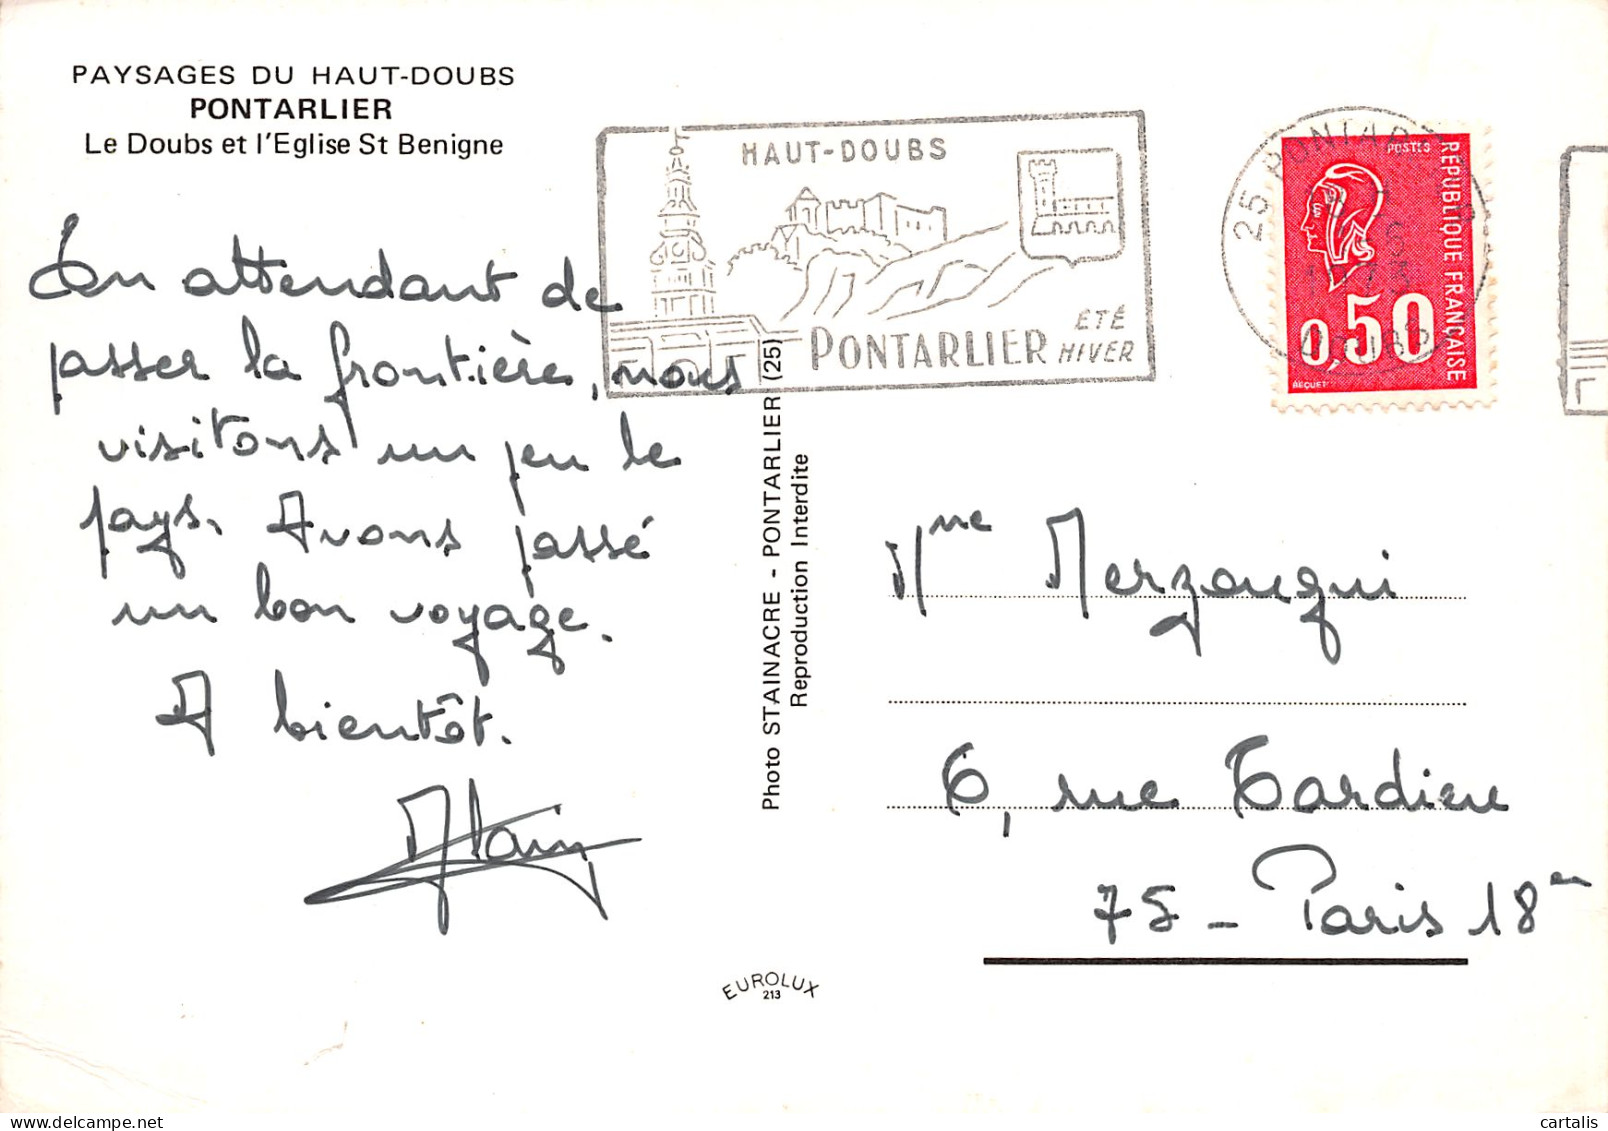 PAYSAGES DU HAUT-DOUBS
PONTARLIER
Le Doubs et l'Eglise St Benigne
En attendant de
passer la frontière, nous
visitons un peu le
pays. Avons passé
un bon voyage.
A bientôt.
Alain
HAUT-DOUBS
PONTARLIER
ÉTÉ
HIVER
25 PONTARLIER
DOUBS
POSTES
REPUBLIQUE FRANÇAISE
0,50
BEQUET
Photo STAINACRE - PONTARLIER (25)
Reproduction Interdite
Mme Merzougui
6, rue Tardieu
75 - Paris 18en
EUROLUX
213
cartalis
delcampe.net